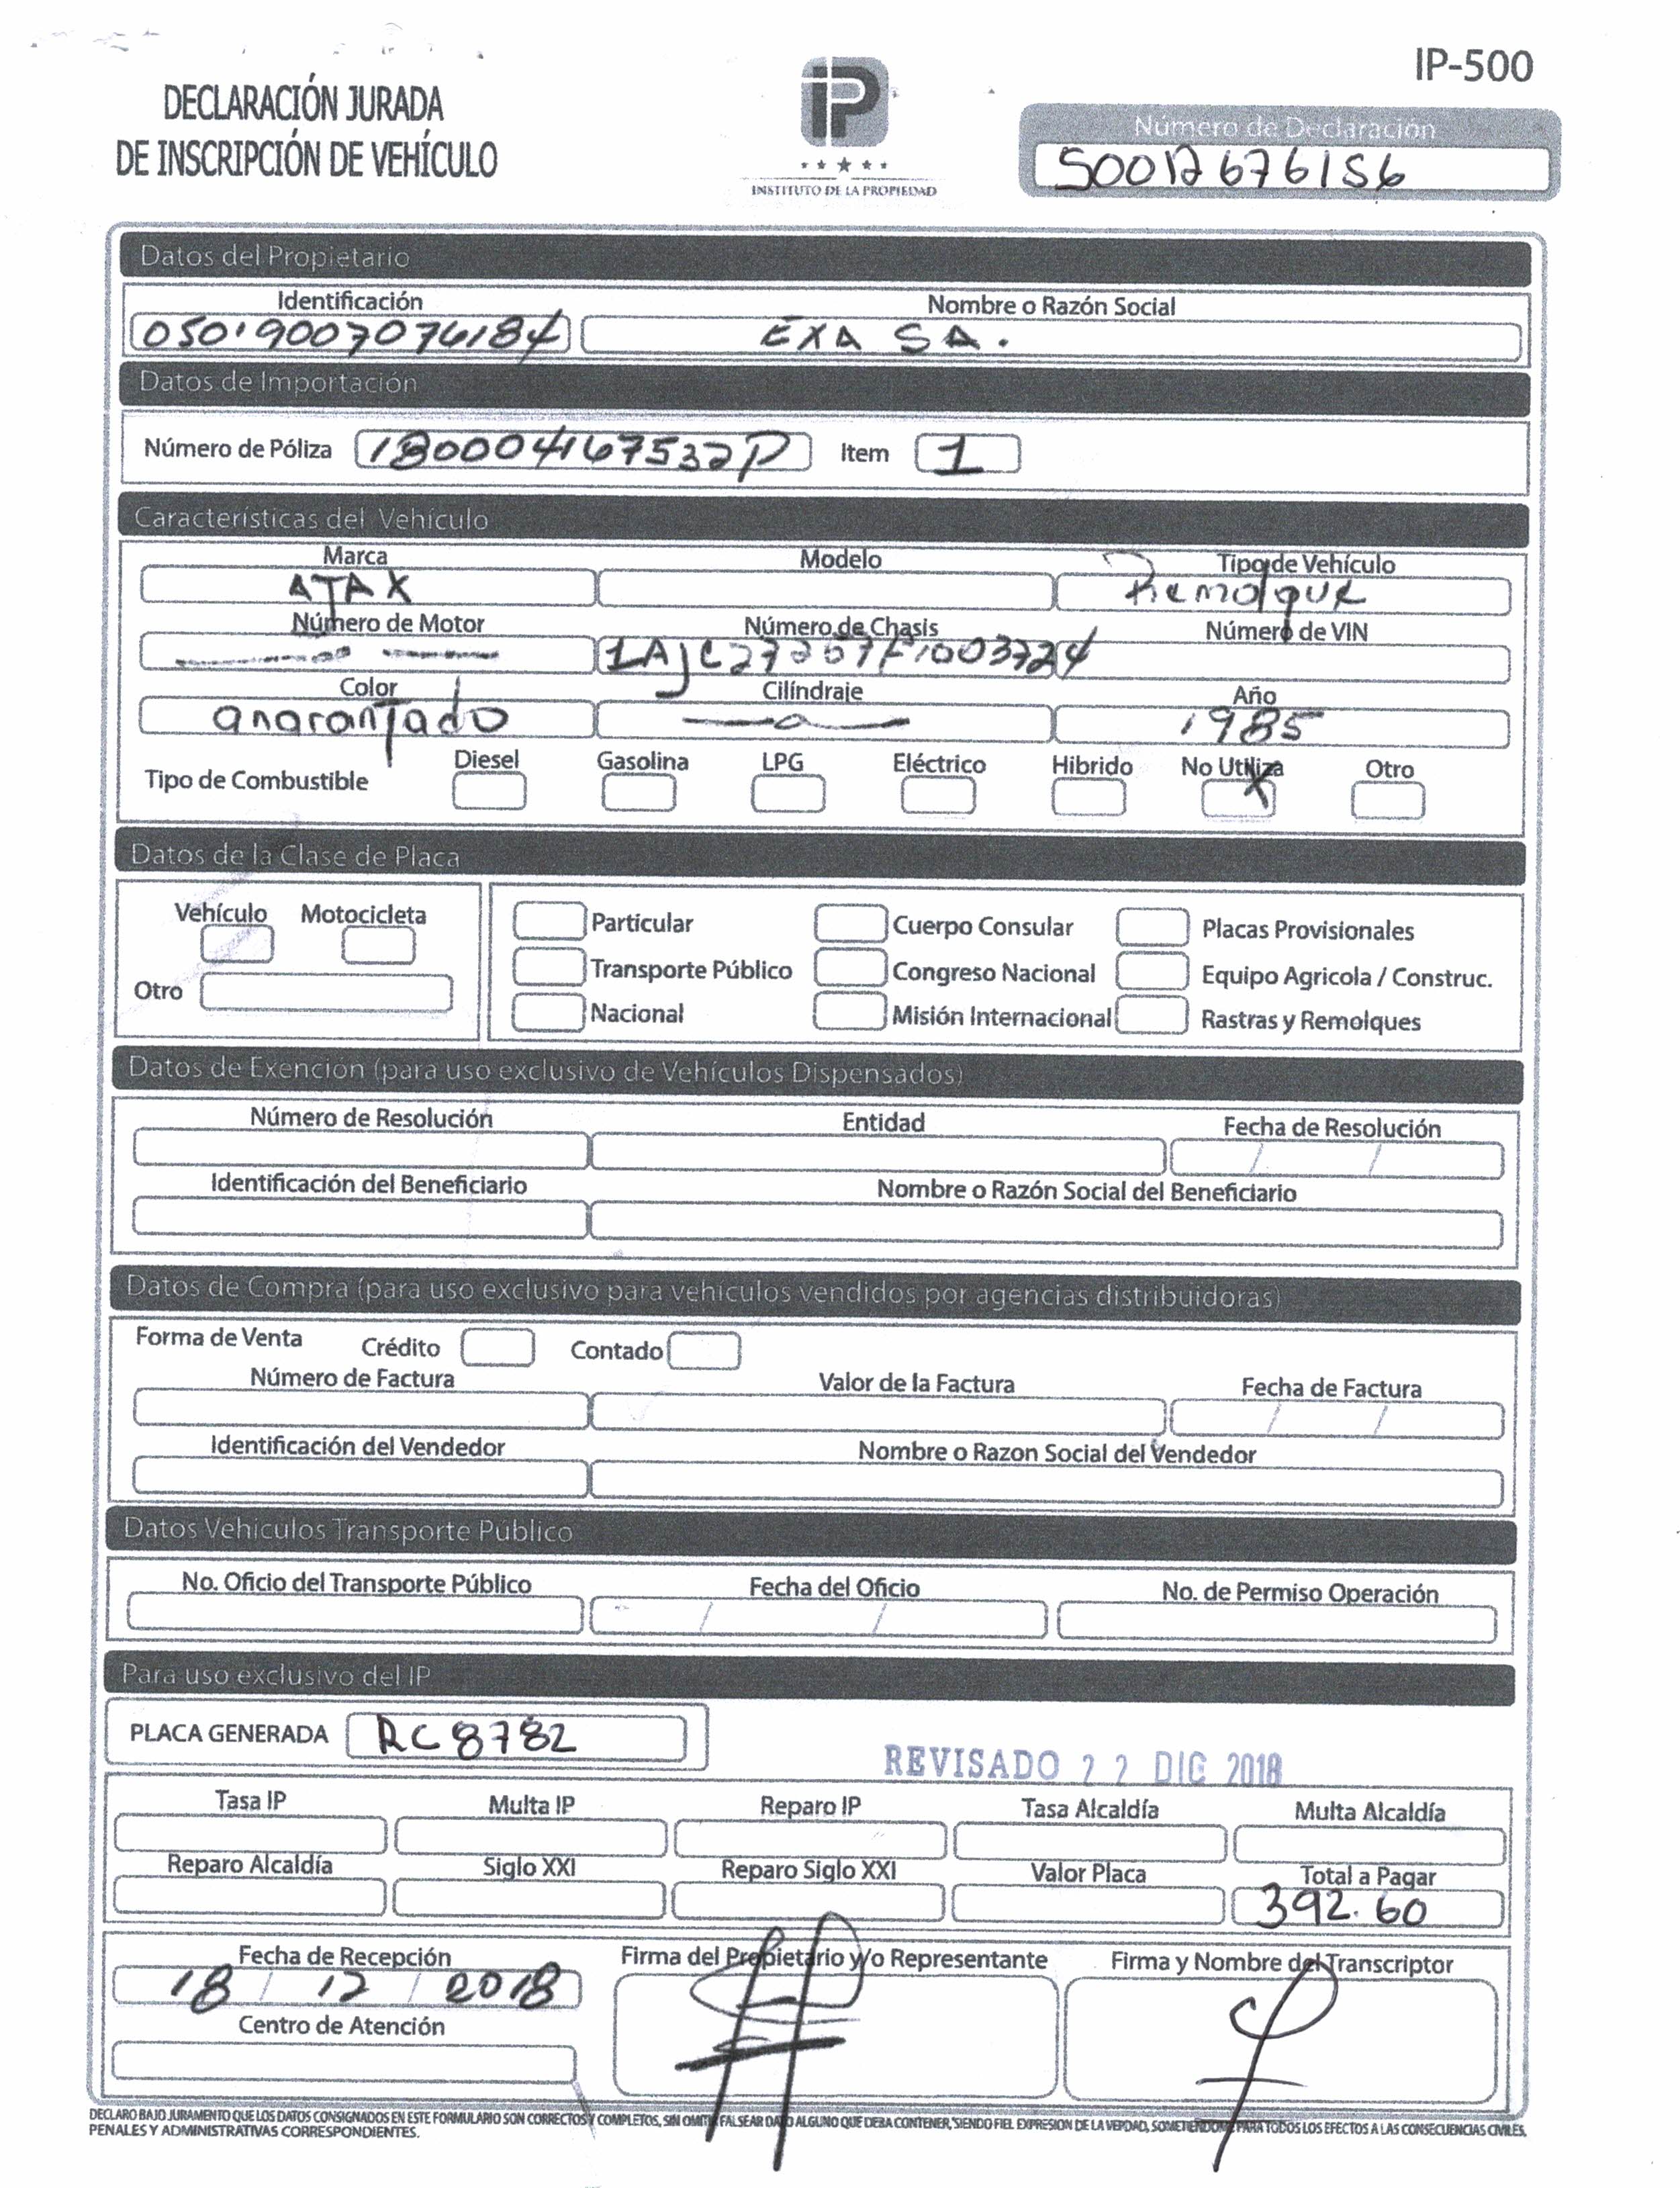 IP-500
DECLARACIÓN JURADA
DE INSCRIPCIÓN DE VEHÍCULO
iP
INSTITUTO DE LA PROPIEDAD
Número de Declaración
50012676156
Datos del Propietario
Identificación Nombre o Razón Social
05019007076184 EXA SA.
Datos de Importación
Número de Póliza 180004167532P Item 1
Características del Vehículo
Marca Modelo Tipo de Vehículo
ATAX Remolque
Número de Motor Número de Chasis Número de VIN
Color Cilíndraje Año
anarantado 1985
Tipo de Combustible Diesel Gasolina LPG Eléctrico Hibrido No Utiliza X Otro
Datos de la Clase de Placa
Vehículo Motocicleta
Otro
Particular Cuerpo Consular Placas Provisionales
Transporte Público Congreso Nacional Equipo Agricola / Construc.
Nacional Misión Internacional Rastras y Remolques
Datos de Exención (para uso exclusivo de Vehículos Dispensados)
Número de Resolución Entidad Fecha de Resolución
/ /
Identificación del Beneficiario Nombre o Razón Social del Beneficiario
Datos de Compra (para uso exclusivo para vehículos vendidos por agencias distribuidoras)
Forma de Venta Crédito Contado
Número de Factura Valor de la Factura Fecha de Factura
/ /
Identificación del Vendedor Nombre o Razon Social del Vendedor
Datos Vehículos Transporte Público
No. Oficio del Transporte Público Fecha del Oficio No. de Permiso Operación
/ /
Para uso exclusivo del IP
PLACA GENERADA RC8782
REVISADO 22 DIC 2018
Tasa IP Multa IP Reparo IP Tasa Alcaldía Multa Alcaldía
Reparo Alcaldía Siglo XXI Reparo Siglo XXI Valor Placa Total a Pagar
392.60
Fecha de Recepción Firma del Propietario y/o Representante Firma y Nombre del Transcriptor
18 / 12 / 2018
Centro de Atención
DECLARO BAJO JURAMENTO QUE LOS DATOS CONSIGNADOS EN ESTE FORMULARIO SON CORRECTOS Y COMPLETOS, SIN OMITIR FALSEAR DATO ALGUNO QUE DEBA CONTENER, SIENDO FIEL EXPRESION DE LA VERDAD, SOMETIENDOME PARA TODOS LOS EFECTOS A LAS CONSECUENCIAS CIVILES,
PENALES Y ADMINISTRATIVAS CORRESPONDIENTES.